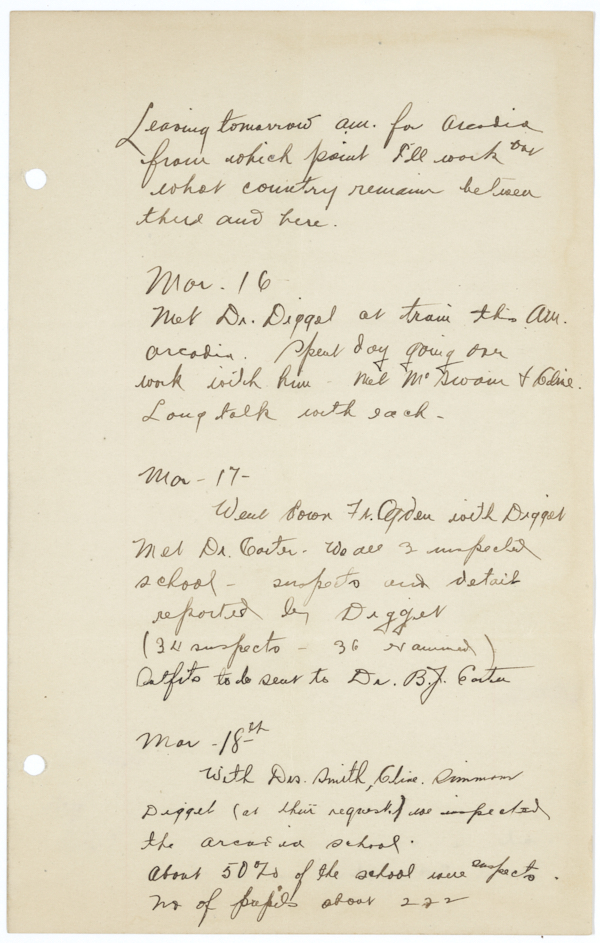 Leaving tomorrow am. for Arcadia
from which point I'll work out
what country remains between
there and here.
Mar. 16
Met Dr. Digget at train this Am.
Arcadia. Spent day going over
work with him - Met McSwain & Cline.
Long talk with each -
Mar - 17 -
Went down Ft. Ogden with Digget
Met Dr. Carter. We all 3 inspected
school - suspects and detail
reported by Digget
(34 suspects - 36 examined)
Outfits to be sent to Dr. B.J. Carter
Mar - 18th
With Drs. Smith, Cline. Simmons
Digget (at their request) we inspected
the Arcadia school.
About 50% of the school were suspects.
No of pupils about 222